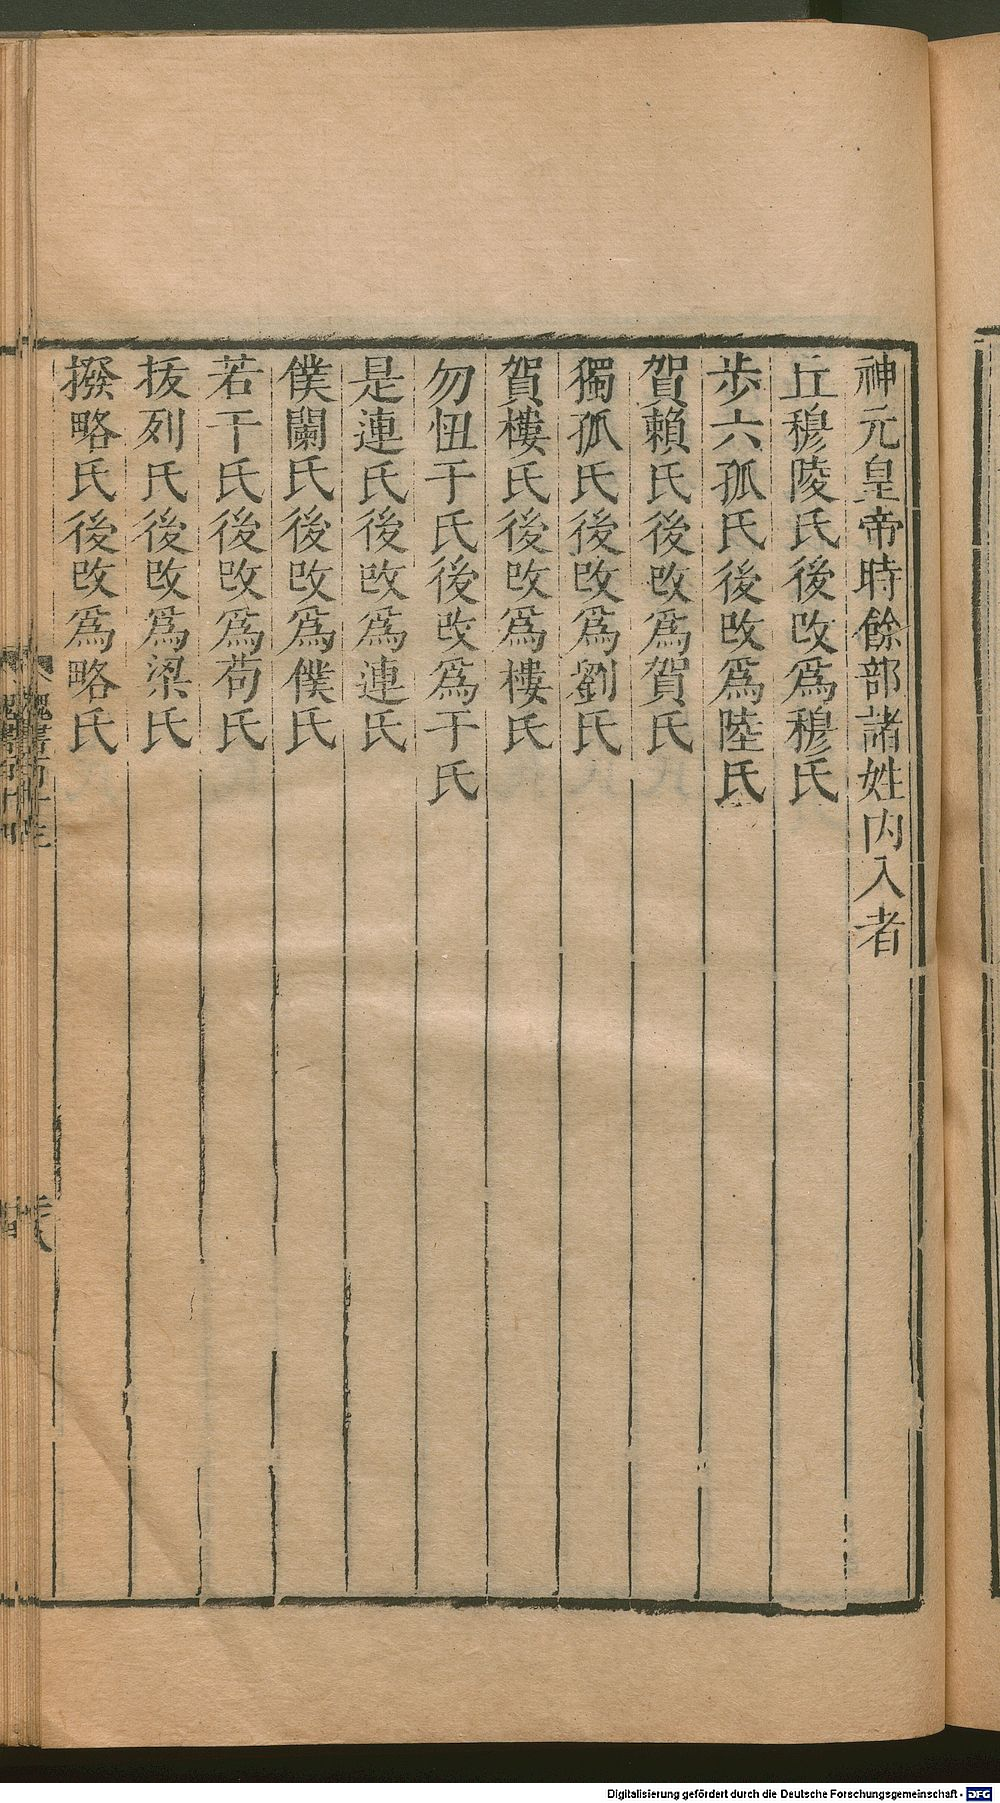 神元皇帝時餘部諸姓内入者
丘穆陵氏後改爲穆氏
歩六孤氏後改爲陸氏
賀賴氏後改爲賀氏
獨孤氏後改爲劉氏
賀樓氏後改爲樓氏
勿忸于氏後改爲于氏
是連氏後改爲連氏
僕闌氏後改爲僕氏
若干氏後改爲苟氏
拔列氏後改爲梁氏
撥略氏後改爲略氏
魏書百十三
Digitalisierung gefördert durch die Deutsche Forschungsgemeinschaft - DFG